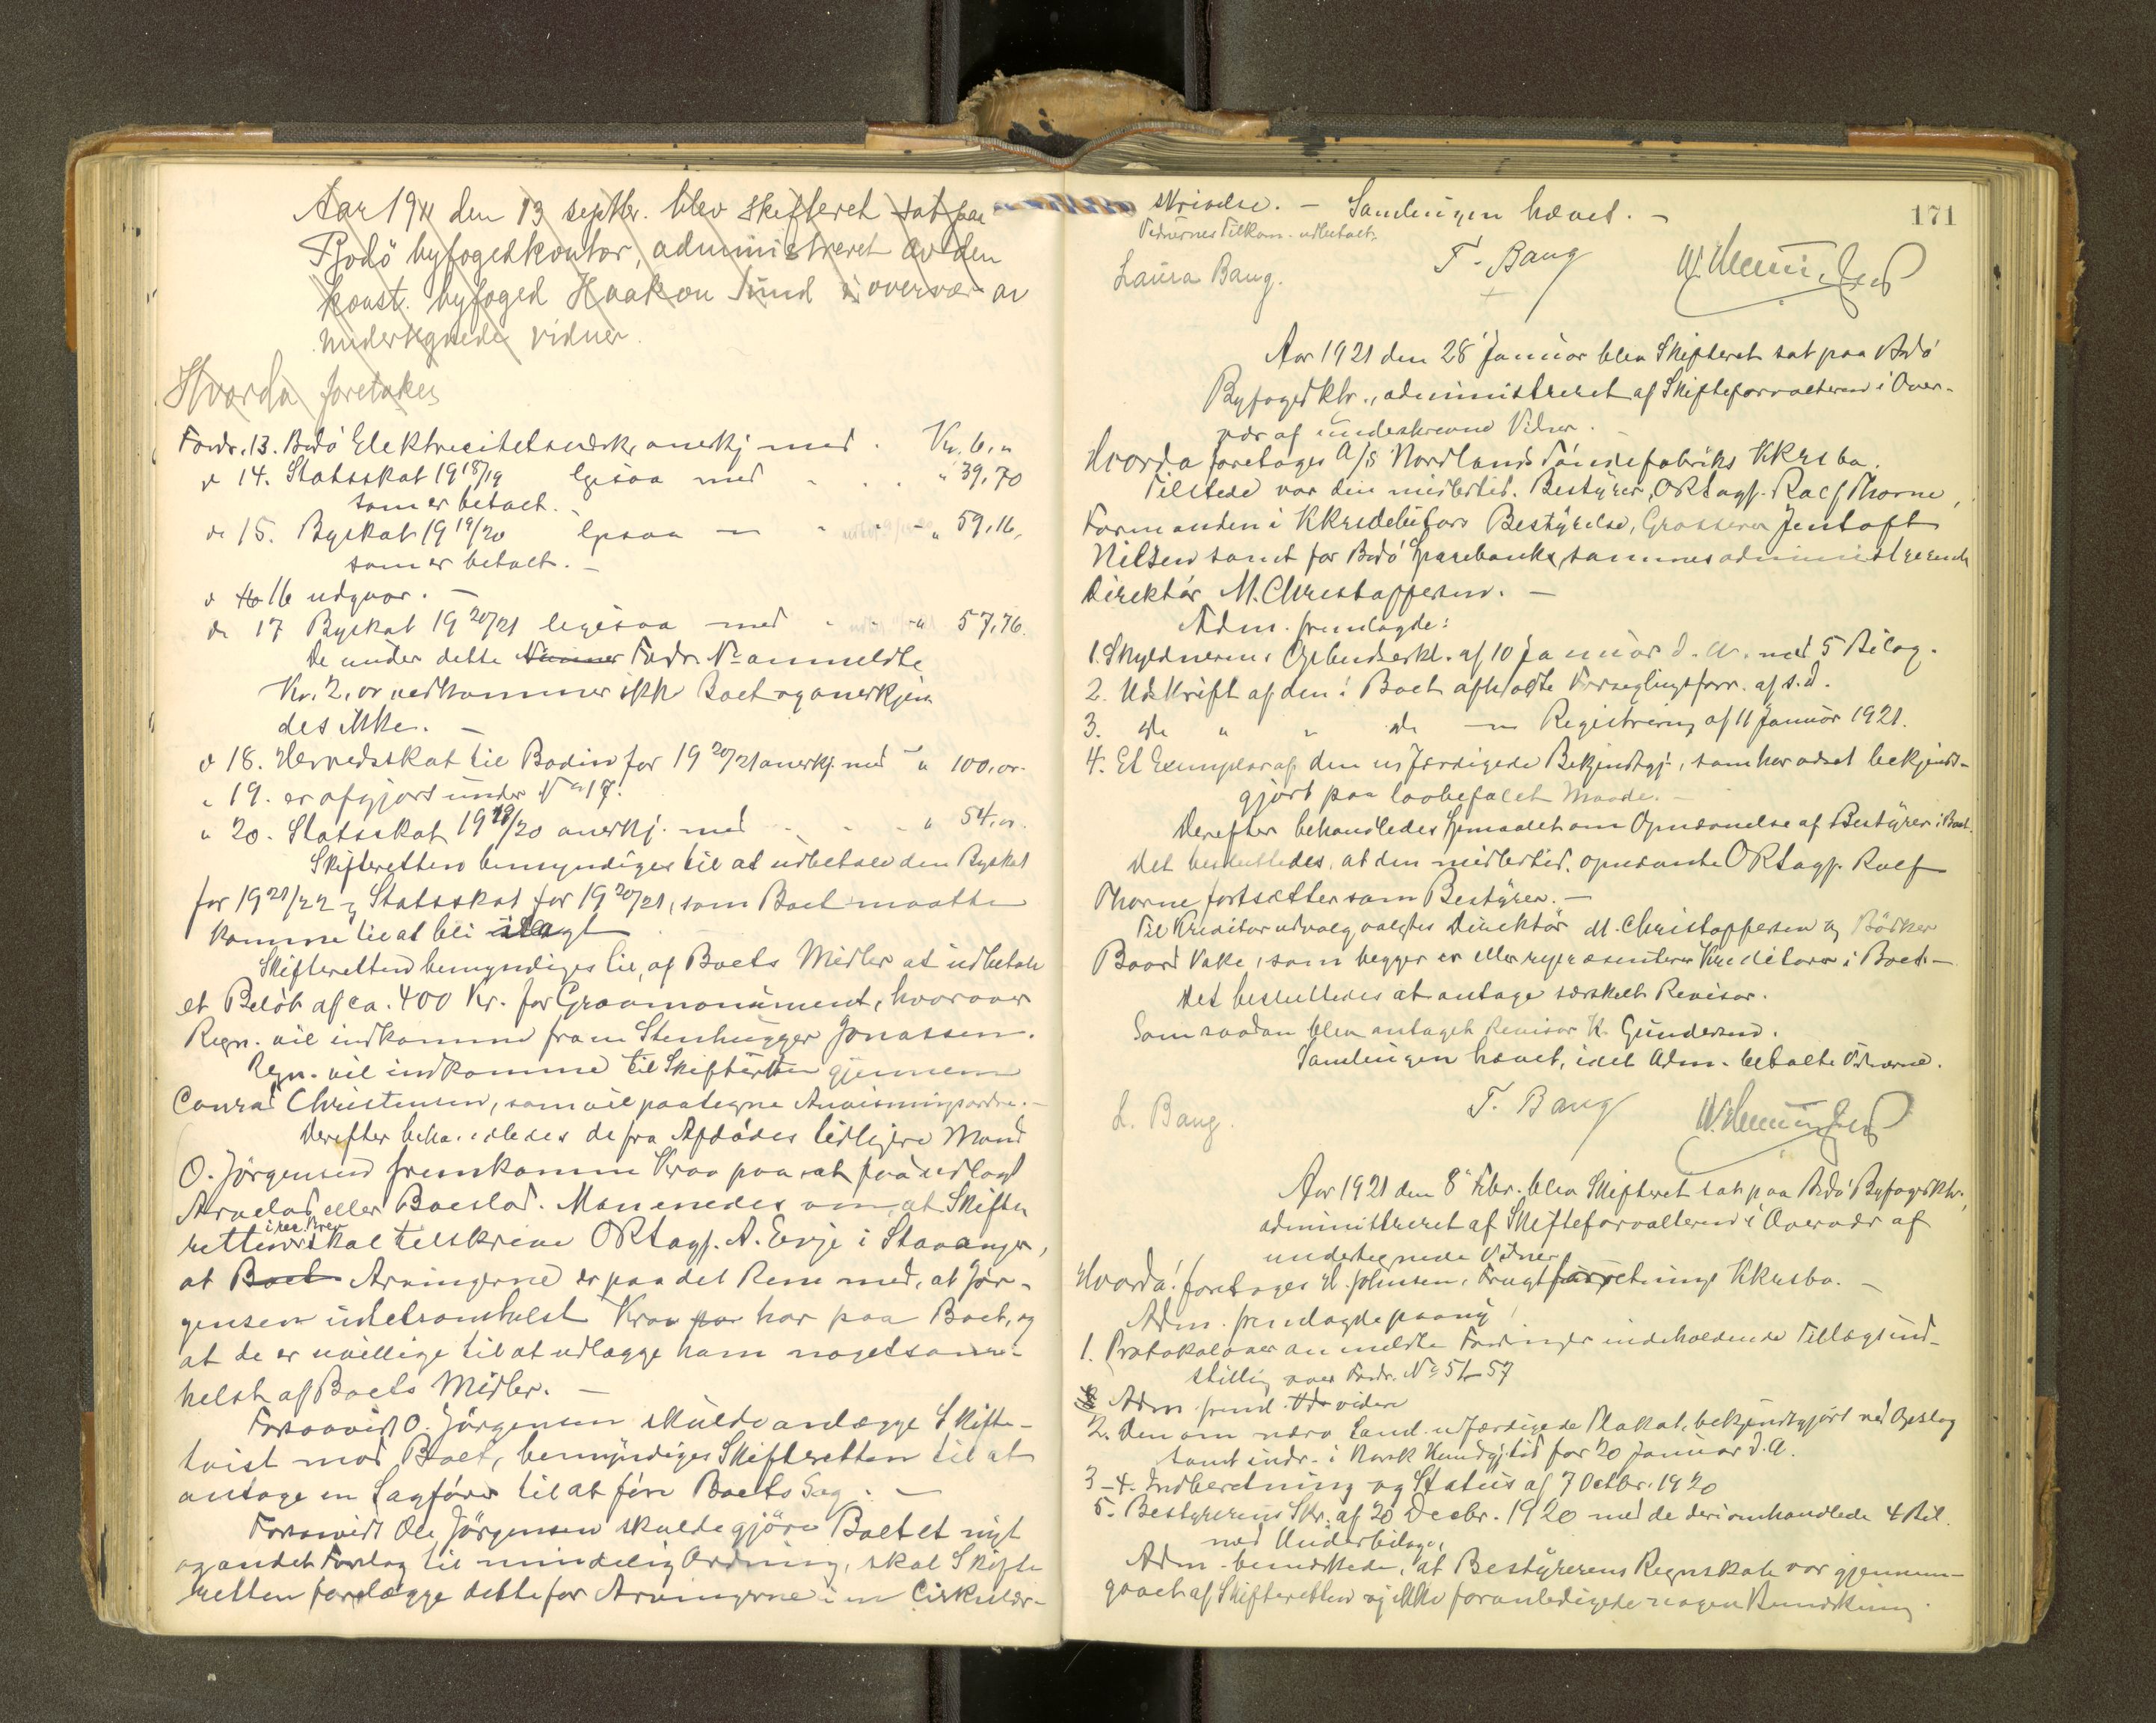 Aar 1921 den 13 septbr. blev skifteret sat paa
Bodö byfogedkontor, administreret av den
konst. byfoged Haakon Sund i overvær av
undertegnede vidner.
Hvorda foretakes
Fordr. 13. Bodö Elektricitetsverk, anerkj. med . Kr. 6,"
" 14. Statsskat 1918/19 ligesaa med . . . " 39,70
som er betalt.
do 15. Byskat 1919/20 ligesaa — " 59,16,
som er betalt. —
" 16 udgaar. —
do 17 Byskat 1920/21 ligesaa med - - " 57,76.
De under dette Nummer Fordr. No anmeldte
Kr. 2, or vedkommer ikke Boet og anerkjen
des ikke. —
" 18. Herredsskat til Bodin for 1920/21 anerkj. med " 100,or.
" 19. er afgjort under No 17.
" 20. Statsskat 1919/20 anerkj. med - - " 54,or.
Skifteretten bemyndiges til at udbetale den Byskat
for 1921/22 og Statsskat for 1920/21, som Boet maatte
komme til at bli ilagt
Skifteretten bemyndiges til, af Boets Midler at udbetale
et Beløb af ca. 400 Kr. for Gravmonument, hvorover
Regn. vil indkomme fra en Stenhugger Jonassen.
Regn. vil indkomme til Skifteretten gjennem
Conrad Christensen, som vil paategne Anvisningsordre. —
Derefter behandledes de fra Afdödes tidligere Mand
O. Jörgensen fremkomne Krav paa at faa udlagt
Arvelod eller Boeslod. Man enedes om, at Skifte
retten i rec. Brev skal tilskrive ORsagf. A. Evje i Stavanger,
at Boet Arvingerne er paa det Rene med, at Jör-
gensen intetsomhelst Krav paa har paa Boet, og
at de er uvillige til at udlægge ham nogetsom-
helst af Boets Midler. —
Forsaavidt O. Jörgensen skulde anlægge Skifte-
tvist mod Boet, bemyndiges Skifteretten til at
antage en Sagförer til at före Boets Sag. —
Forsaavidt Ole Jörgensen skulde gjöre Boet et nyt
og andet Forslag til mindelig Ordning, skal Skifte
retten forelægge dette for Arvingerne i en Cirkulær-
171
skrivelse. — Samlingen hævet. —
Vidnernes Tilkom. udbetalt.
Laura Bang. F. Bang
Aar 1921 den 28 Januar blev Skifteret sat paa Bodö
Byfogedktr., administreret af Skifteforvalteren i Over-
vær af underskrevne Vidner.
Hvorda foretages A/S Nordlands Töndefabriks Kkrsbo.
Tilstede var den midlertid. Bestyrer, ORsagf. Ralf Thorne,
Formanden i Kkrsdebitors Bestyrelse, Grosserer Jentoft
Nilsen samt for Bodö Sparebank, sammes administrerende
Direktör M. Christoffersen. —
Adm. fremlagde:
1. Skyldnerens Opbudserkl. af 10 Januar d. A. med 5 Bilag.
2. Udskrift af den i Boet afholdte Forseglingsforr. af s. d.
3. do " " do — Registrering af 11 Januar 1921.
4. Et Exemplar af den udfærdigede Bekjendtgj., som har været bekjendt-
gjort paa lovbefalet Maade. —
Derefter behandledes Spmaalet om Opnævnelse af Bestyrer i Boet.
Det besluttedes, at den midlertid. opnævnte ORsagf. Ralf
Thorne fortsætter som Bestyrer. —
Til Kreditorudvalg valgtes Direktör M. Christoffersen og Bödker
Baard Vake, som begge er eller repræsenterer Kreditorer i Boet. —
Det besluttedes at antage særskilt Revisor.
Som saadan blev antaget Revisor K. Gundersen.
Samlingen hævet, idet Adm. betalte Vidnerne.
L. Bang. F. Bang
Aar 1921 den 8 Febr. blev Skifteret sat paa Bodö Byfogedktr.,
administreret af Skifteforvalteren i Overvær af
undertegnede Vidner
Hvorda: foretages H. Johnsens Frugtforretnings Kkrsbo. —
Adm. fremlagde paany
1. Protokol over anmeldte Fordringer indeholdende Tillægsind-
stilling over Fordr. No 51-57
Adm. freml. videre
2. Den om nærv. Saml. udfærdigede Plakat, bekjendtgjort ved Opslag
samt indr. i Norsk Kundgj.tid for 20 Januar d. A.
3-4. Indberetning og Status af 7 Octbr. 1920
5. Bestyrerens Skr. af 20 Decbr. 1920 med de deri omhandlede 4 Bil.
med Underbilage,
Adm. bemærkede, at Bestyrerens Regnskab var gjennem-
gaaet af Skifteretten og ikke foranledigede nogen Bemærkning